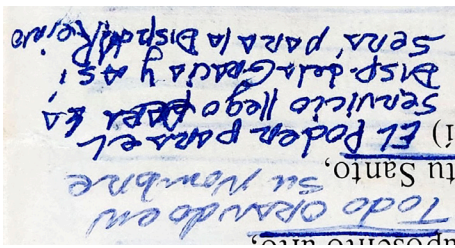 aposento alto,
Todo ORANDO en
su Nombre
tu Santo,
í) EL PODER para el
Servicio llego PARA LA
DISP de la GRACIA y ASí
SERÁ, para la DISP del Reino